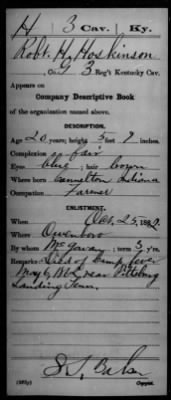 H 3 Cav. Ky.
Robt. H. Hoskinson
, Co. G 3 Reg't Kentucky Cav.
Appears on
Company Descriptive Book
of the organization named above.
DESCRIPTION.
Age 20 years; height 5 feet 9 inches.
Complexion fair
Eyes blue; hair brown
Where born Cannelton Indiana
Occupation Farmer
ENLISTMENT.
When Oct. 25, 186
Where Owensboro
By whom McGavan; term 3 y'rs.
Remarks: Died of Camp fever
May 6, 1862 near Pittsburg
Landing Tenn.
Copyist.